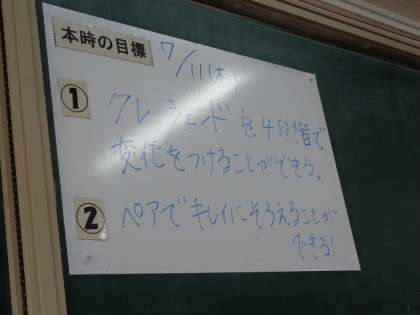 本時の目標
7/11(木)
① クレッシェンドを4段階で
変化をつけることができる。
② ペアでキレイにそろえることが
できる!